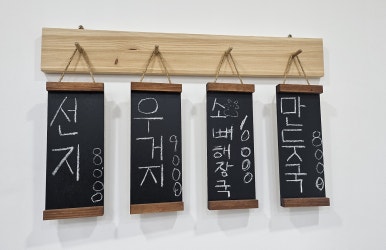 선지
8000
우거지
9000
소뼈해장국
10000
만둣국
8000